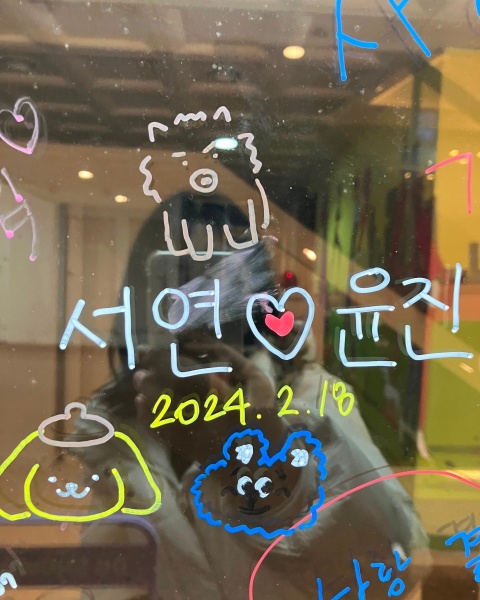 서연♡윤진
2024.2.18
사랑